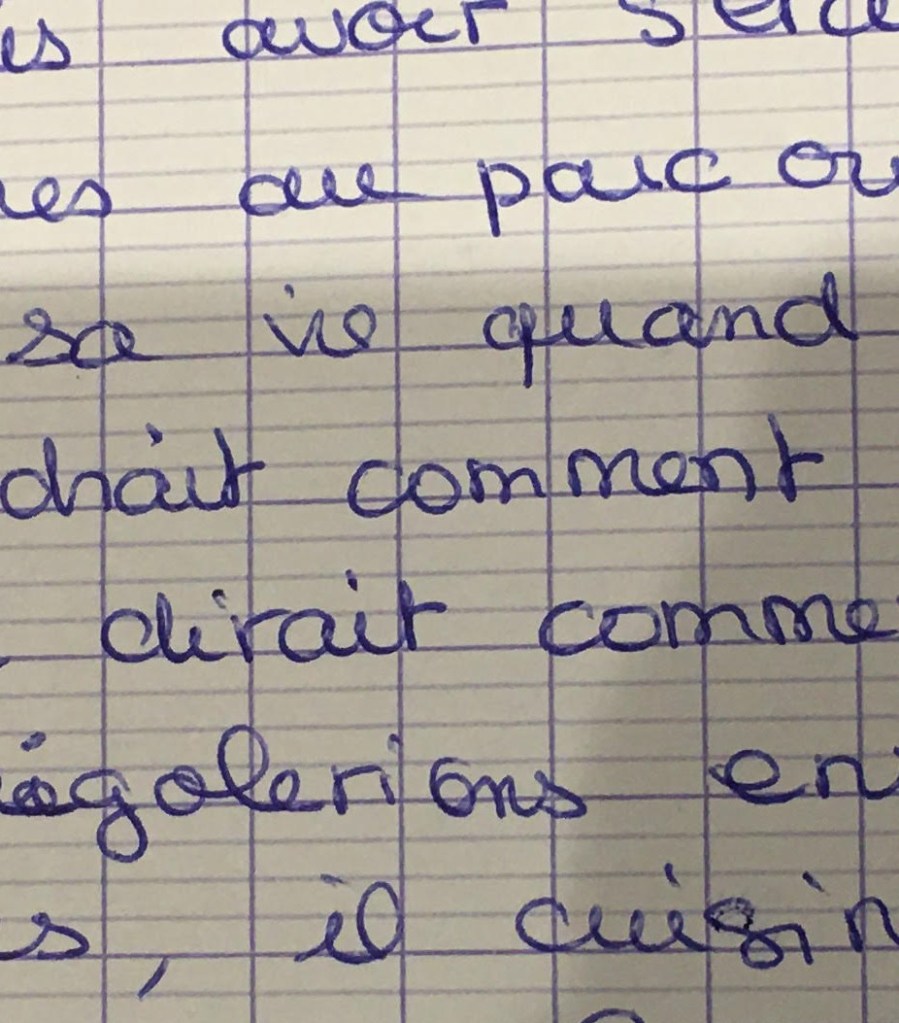 avoir
au parc ou
sa vie quand
drait comment
dirait comme
égalerions en
s, il cuisin